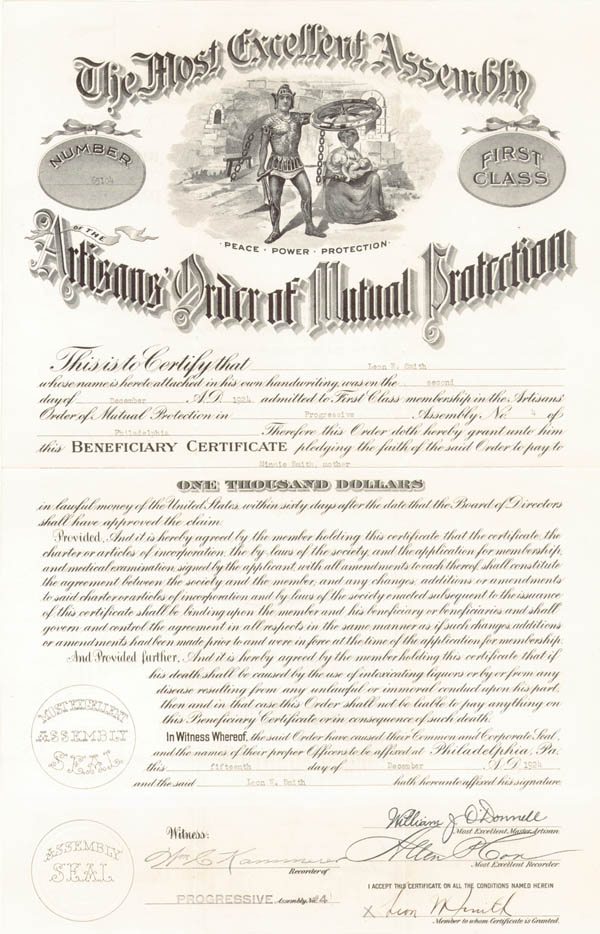 The Most Excellent Assembly
NUMBER
FIRST
CLASS
· PEACE · POWER · PROTECTION ·
OF THE
Artisans' Order of Mutual Protection
This is to Certify that Leon W. Smith
whose name is hereto attached in his own handwriting, was on the second
day of December A.D. 1924, admitted to First Class membership in the Artisans'
Order of Mutual Protection in Progressive Assembly, No. 4 of
Philadelphia Therefore this Order doth hereby grant unto him
this BENEFICIARY CERTIFICATE pledging the faith of the said Order to pay to
Minnie Smith, mother
ONE THOUSAND DOLLARS
in lawful money of the United States, within sixty days after the date that the Board of Directors
shall have approved the claim.
Provided, And it is hereby agreed by the member holding this certificate that the certificate, the
charter or articles of incorporation, the by-laws of the society, and the application for membership,
and medical examination, signed by the applicant, with all amendments to each thereof, shall constitute
the agreement between the society and the member, and any changes, additions or amendments
to said charter or articles of incorporation and by-laws of the society enacted subsequent to the issuance
of this certificate shall be binding upon the member and his beneficiary or beneficiaries and shall
govern and control the agreement in all respects in the same manner as if such changes, additions
or amendments had been made prior to and were in force at the time of the application for membership.
And Provided further, And it is hereby agreed by the member holding this certificate that if
his death shall be caused by the use of intoxicating liquors or by or from any
disease resulting from any unlawful or immoral conduct upon his part,
then and in that case this Order shall not be liable to pay anything on
this Beneficiary Certificate or in consequence of such death.
MOST EXCELLENT
ASSEMBLY
SEAL
In Witness Whereof, the said Order have caused their Common and Corporate Seal,
and the names of their proper Officers to be affixed at Philadelphia, Pa.
this fifteenth day of December A.D. 1924
and the said Leon W. Smith hath hereunto affixed his signature.
ASSEMBLY
SEAL
Witness:
William J O'Donnell
Most Excellent Master Artisan.
Wm C Kammerer
Allen P. Cox
Recorder of
Most Excellent Recorder.
I ACCEPT THIS CERTIFICATE ON ALL THE CONDITIONS NAMED HEREIN
PROGRESSIVE Assembly, No. 4
x Leon W Smith
Member to whom Certificate is Granted.